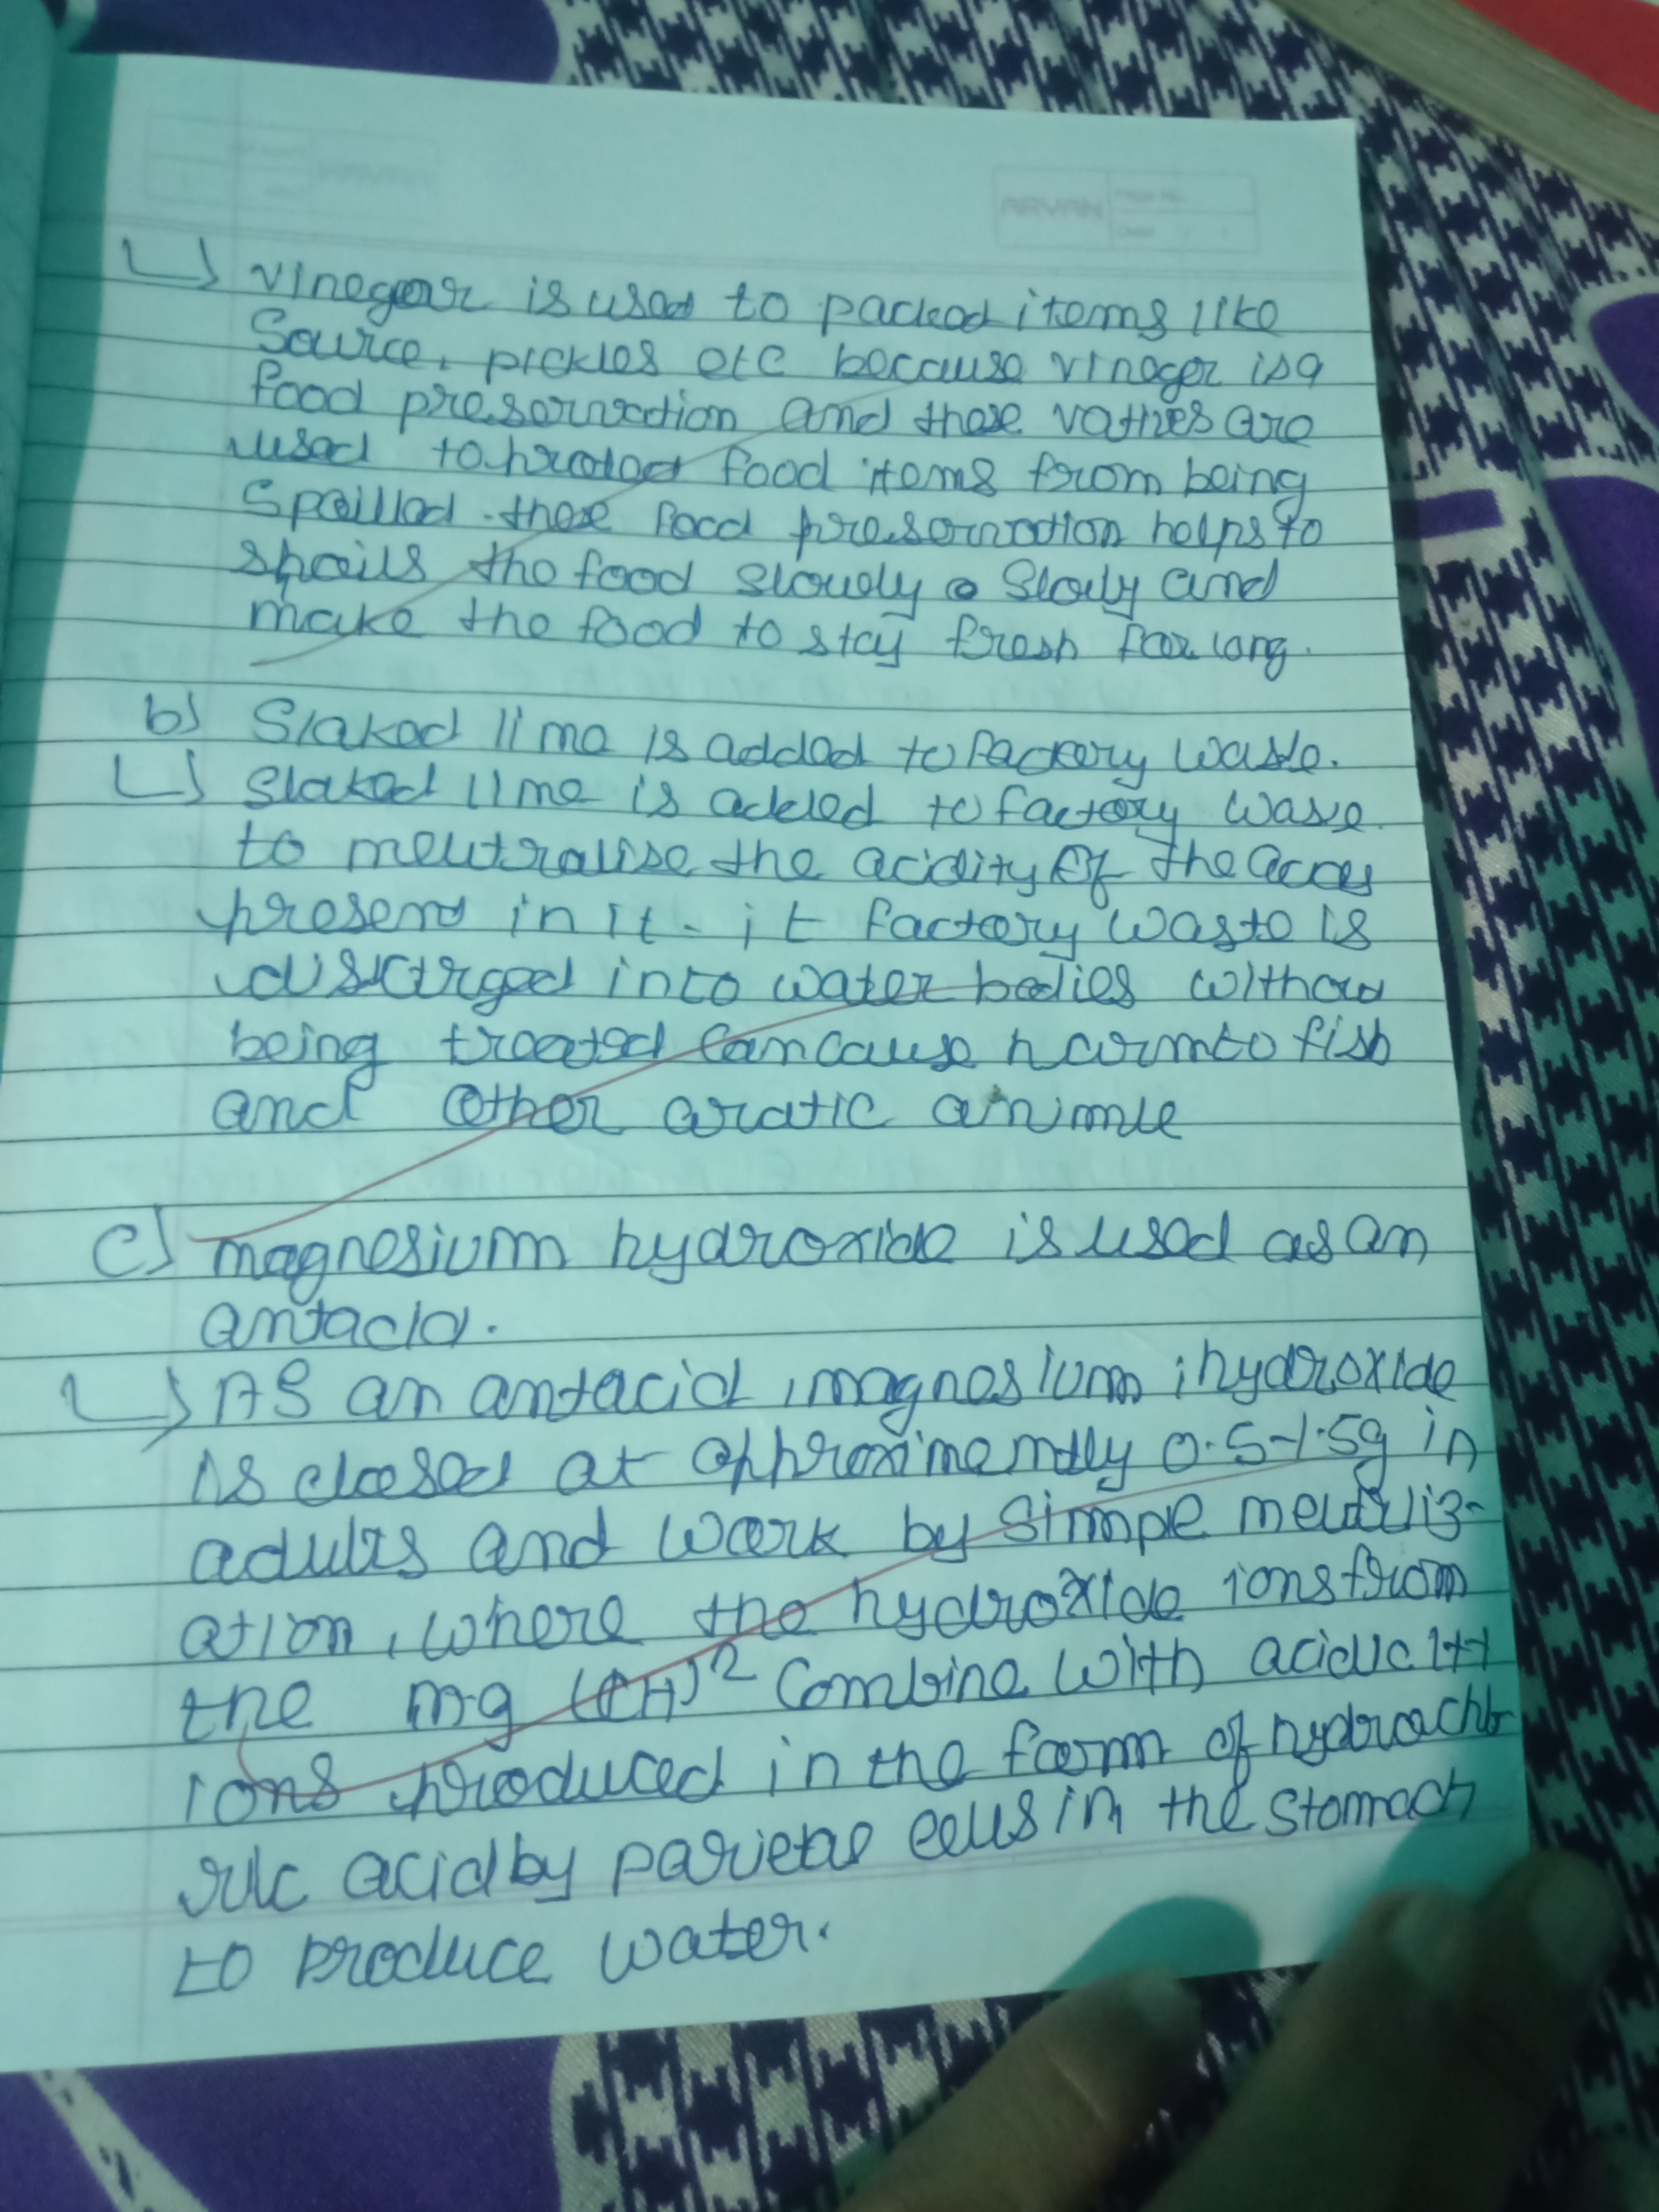 ARVAN
vinegar is used to packed items like
Source, pickles etc because vineger is a
food preservation and these vatives are
used to protect food items from being
Spoilled. these food preservation helps to
spoils the food slowely Slowly and
make the food to stay fresh for long.
b) Slaked lime is added to factory waste.
Slaked lime is added to factory wase
to neutralise the acidity of the
present in it. it factory waste is
into water bodies without
being treated can cause harm to fish
and other aratic animle
c) magnesium hydroxide is used as an
antacid.
AS an antacid, magnesium hydroxide
is dosed at 0.5-1.5g in
adults and work by Simple neutraliz-
ation, where the hydroxide ions from
the mg (OH)² Combine with acidic H+
ions produced in the form of hydrochlo-
ric acid by parietal cells in the stomach
to produce water.